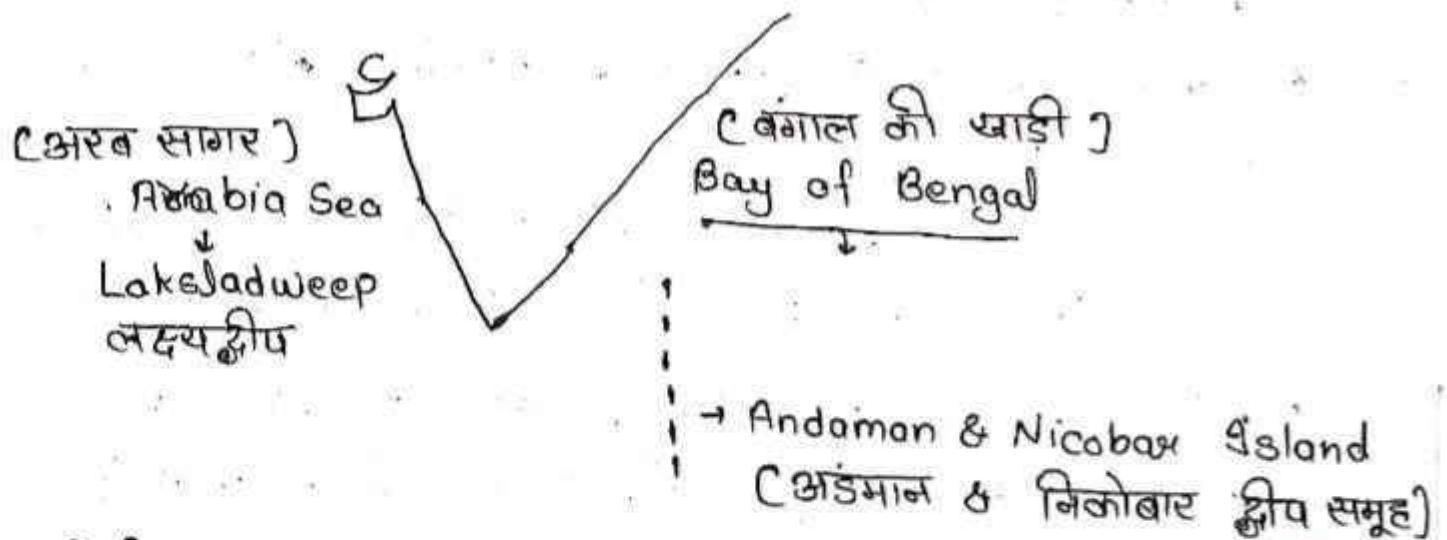 (अरब सागर)
Arabia Sea
↓
Lakshadweep
लक्ष्यद्वीप
(बंगाल की खाडी)
Bay of Bengal
↓
→ Andaman & Nicobar Island
(अंडमान & निकोबार द्वीप समूह)